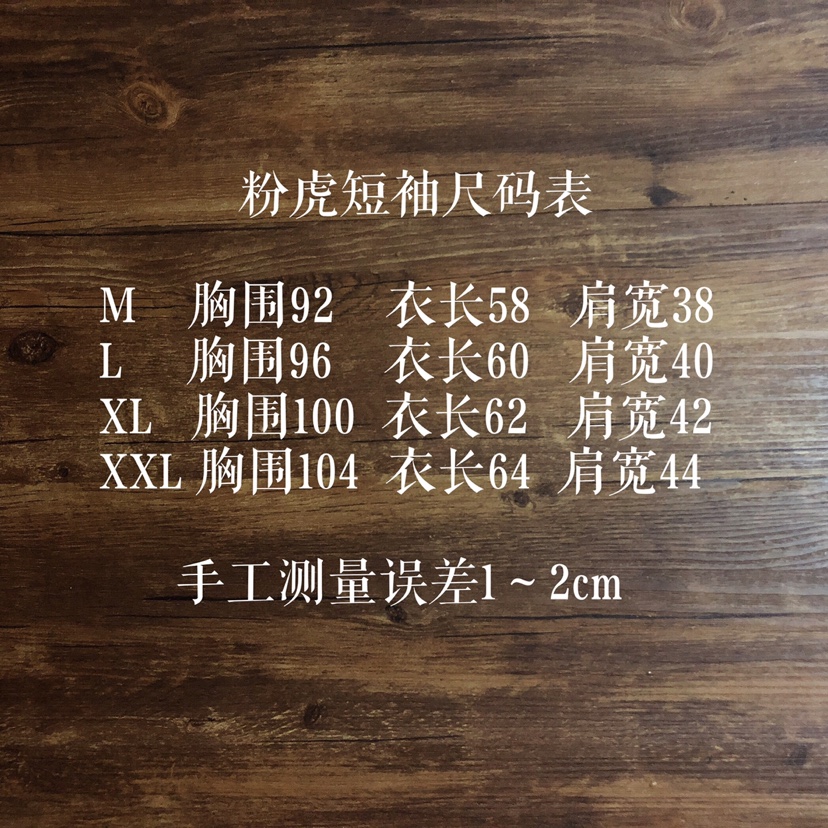 粉虎短袖尺码表
M 胸围92 衣长58 肩宽38
L 胸围96 衣长60 肩宽40
XL 胸围100 衣长62 肩宽42
XXL 胸围104 衣长64 肩宽44
手工测量误差1~2cm